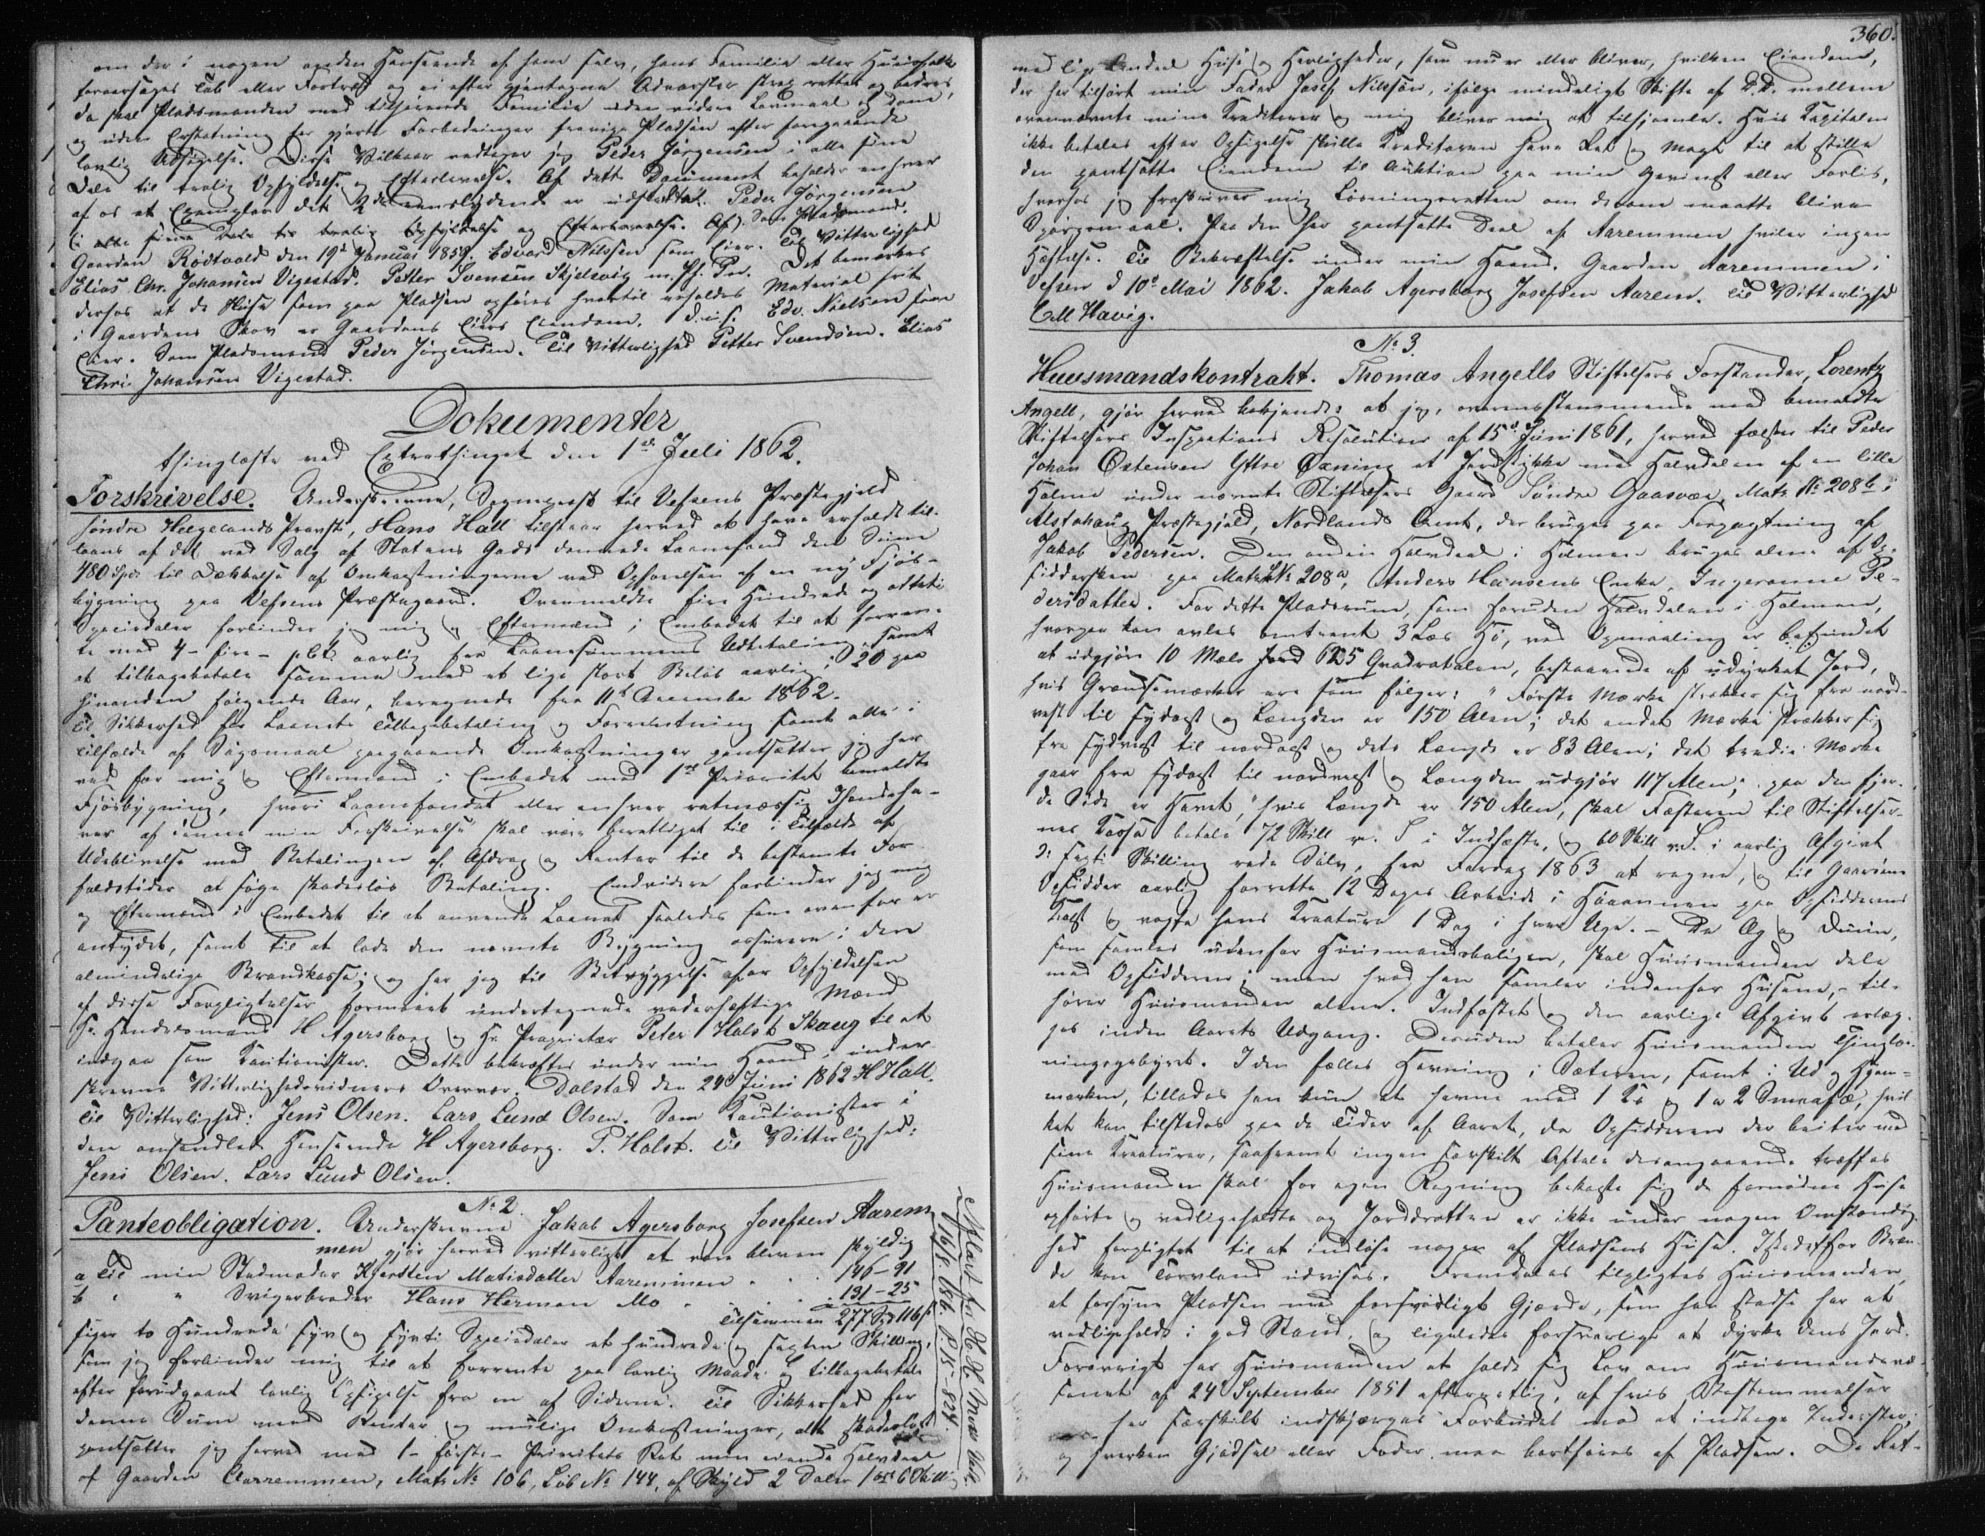 om der i nogen anden Henseende af ham selv, hans Familie eller Huusfolk
foraarsages Tab eller Fortræd og ei efter gjentagne Advarsler strax rettes og bedres,
da skal Pladsmanden med tilhørende Familie uden videre Lovmaal og Dom
og uden Erstatning for gjorte Forbedringer fravige Pladsen efter foregaaende
lovlig Udsigelse. Disse Vilkaar vedtager jeg Peder Jørgensen i alle sine
Dele til trolig Opfyldelse og Efterlevelse. Af dette Document beholder enhver
af os et Exemplar det 2de eenslydende er udstedt. Peder Jørgensen
(i alle sine Dele til trolig Opfyldelse og Efterlevelse. Af) Som Pladsmand.
Gaarden Rødtvold den 19de Januar 1859. Edvard Nilssen som Eier. Til Vitterlighed
Elias Chr. Johansen Vigestad. Petter Svensen Skjelsvig m. ff. Pen. Det bemærkes
derhos at de Huse som paa Pladsen opføres hvortil erholdes Material frit
i Gaardens Skov er Gaardens Eiers Eiendom. d. u. s. Edv. Nielsen som
Eier. Som Pladsmand Peder Jørgensen. Til Vitterlighed Petter Svendsen. Elias
Chri. Johansen Vigestad.
Dokumenter
thinglæste ved Extrathinget den 1ste Juli 1862.
Forskrivelse. Underskrevne, Sogneprest til Vefsens Præstegjeld
søndre Helgelands Provsti, Hans Hall tilstaar herved at have erholdt til-
laans af det ved Salg af Statens Gods dannede Laanefond den Sum
480 Spd. til Dækkelse af Omkostningerne ved Opførelsen af en ny Fjøs-
bygning paa Vefsens Præstegaard. Ovenmeldte fire Hundrede og otteti
Speciedaler forbinder jeg mig og Eftermænd i Embedet til at forren-
te med 4 - fire - pCt. aarlig fra Laanesummens Udbetaling, samt
at tilbagebetale samme med et lige stort Beløb aarlig i 20 paa
hinanden følgende Aar, beregnede fra 11te December 1862.
Til Sikkerhed for Laanets Tilbagebetaling og Forrentning samt alle i
Tilfælde af Søgsmaal paagaaende Omkostninger pantsætter jeg her
ved for mig og Eftermænd i Embedet med 1ste Prioritet bemeldte
Fjøsbygning, hvori Laanefondet eller enhver retmæssig Ihændeha-
ver af denne min Forskrivelse skal være berettiget til i Tilfælde af
Udeblivelse med Betalingen af Afdrag og Renter til de bestemte For-
faldstider at søge skadesløs Betaling. Endvidere forbinder jeg mig
og Eftermænd i Embedet til at anvende Laanet saaledes som ovenfor er
antydet, samt til at lade den nævnte Bygning assurere i den
almindelige Brandkasse; og har jeg til Betryggelse af Opfyldelsen
af disse Forpligtelser formaaet undertegnede vederhæftige Mænd
Hr. Handelsmand H Agersborg og Hr. Proprietær Peter Holst Skaug til at
indgaa som Kautionister. Dette bekræftes under min Haand i under-
skrevne Vitterlighedsvidners Overvær. Dolstad den 24de Juni 1862 H Hall.
Til Vitterlighed: Jens Olsen. Lars Lund Olsen. Som Kautionister i
den omhandlede Henseende H Agersborg. P. Holst. Til Vitterlighed:
Jens Olsen. Lars Lund Olsen.
No 2.
Panteobligation. Underskrevne Jakob Agersborg Josefsen Aarem
men gjør herved vitterligt at være bleven skyldig
a Til min Stedmoder Kjersten Matisdatter Aaremmen . . . 146-91
b " " Svigerbroder Hans Herman Mo . . . 131-25
Tilsammen 277 Spd 116 s
siger to Hundrede syv og syvti Speciedaler et hundrede og sexten Skilling,
som jeg forbinder mig til at forrente paa lovlig Maade og tilbagebetale
efter forudgaaet lovlig Opsigelse fra en af Siderne. Til Sikkerhed for
denne Sum med Renter og mulige Omkostninger, alt skadesløst
pantsætter jeg herved med 1 - første - Prioritets Ret min eiende Halvdeel
af Gaarden Aarremmen, Matr. No 106, Løb No 144, af Skyld 2 Daler 1 ort 6 Skilling
360.
med lige Andeel Huse og Herligheder, som nu er eller bliver, hvilken Eiendom,
der har tilhørt min Fader Josef Nilssøn, ifølge mindeligt Skifte af D.D. mellem
ovennævnte mine Kreditorer og mig bliver mig at tilhjemle. Hvis Kapitalen
ikke betales efter Opsigelse skulle Kreditoren have Ret og Magt til at stille
den pantsatte Eiendom til Auktion paa min Gevinst eller Forlis,
hvorhos jeg fraskriver mig Løsningsretten om derom maatte blive
Spørgsmaal. Paa den her pantsatte Deel af Aaremmen hviler ingen
Hæftelse. Til Bekræftelse under min Haand. Gaarden Aaremmen i
Vefsen d 10de Mai 1862. Jakob Agersborg Josefsen Aarem. Til Vitterlighed
C M Havig.
No 3.
Huusmandskontrakt. Thomas Angells Stiftelsers Forstander, Lorentz
Angell, gjør herved bekjendt: at jeg, overensstemmende med bemeldte
Stiftelsers Inspections Resolution af 15de Juni 1861, herved fæster til Peder
Johan Østensen Yttre Øxning et Jordstykke med Halvdelen af en lille
Holme under nævnte Stiftelsers Gaard Søndre Gaasvær, Matr. No 208b i
Alstahaug Præstegjeld, Nordlands Amt, der bruges paa Forpagtning af
Jakob Pedersen. Den anden Halvdeel i Holmen bruges alene af Op-
siddersken paa Matr. No 208a, Anders Hansens Enke, Ingeranna Pe-
dersdatter. For dette Pladserum, som foruden Halvdelen i Holmen,
hvorpaa kan avles omtrent 3 Læs Hø, ved Opmaaling er befundet
at udgjøre 10 Mæle Jord 625 Qvadratalen, bestaaende af udyrket Jord,
hvis Grændsemærker ere som følger: " Første Mærke strækker sig fra nord-
vest til sydost og Længden er 150 Alen; det andet Mærke strækker sig
fra sydvest til nordost og dets Længde er 83 Alen; det tredie Mærke
gaar fra sydost til nordvest og Længden udgjør 117 Alen; paa den fjer-
de Side er Havet," hvis Længde er 150 Alen, skal Fæsteren til Stiftelser-
nes Kasse betale 72 Skill r. S. i Indfæste, og 60 Skill r. S. i aarlig Afgivt
ɔ: sexti Skilling rede Sølv, fra Fardag 1863 at regne, og til Gaardens
Opsidder aarlig forrette 12 Dages Arbeide i Høaannen paa Opsidderens
Kost og vogte hans Kreature 1 Dag i hver Uge. - De Æg og Duun,
som samles udenfor Huusmandsboligen, skal Huusmanden dele
med Opsidderen; men hvad han samler indenfor Husene, - til-
hører Huusmanden alene. Indfæstet og den aarlige Afgivt erlæg-
ges inden Aarets Udgang. Desuden betaler Huusmanden Thinglæs-
ningsgebyret. I den fælles Havning i Sæteren, samt i Ud og Hjem-
marken, tillades han kun at havne med 1 Ko og 1 a 2 Smaafæ, hvil
ket kun tilstedes paa de Tider af Aaret, da Opsidderen der beiter med
sine Kreaturer, saafremt ingen særskilt Aftale desangaaende træffes
Huusmanden skal for egen Regning bekoste sig de fornødne Huse
opførte og vedligeholdte og Jorddrotten er ikke under nogen Omstændig
hed forpligtet til at indløse nogen af Pladsens Huse. Istedetfor Bræn-
de kan Torvland udvises. Fremdeles tilpligtes Huusmanden
at forsyne Pladsen med forsvarligt Gjærde, som han stadse har at
vedligeholde i god Stand, og ligeledes forsvarligt at dyrke dens Jord.
Forøvrigt har Huusmanden at holde sig Lov om Huusmandsvæ-
senet af 24de September 1851 efterrettelig, af hvis Bestemmelser
her særskilt indskjærpes Forbudet mod at indtage Inderster,
og hverken Gjødsel eller Foder maa bortføres af Pladsen. De Ret-